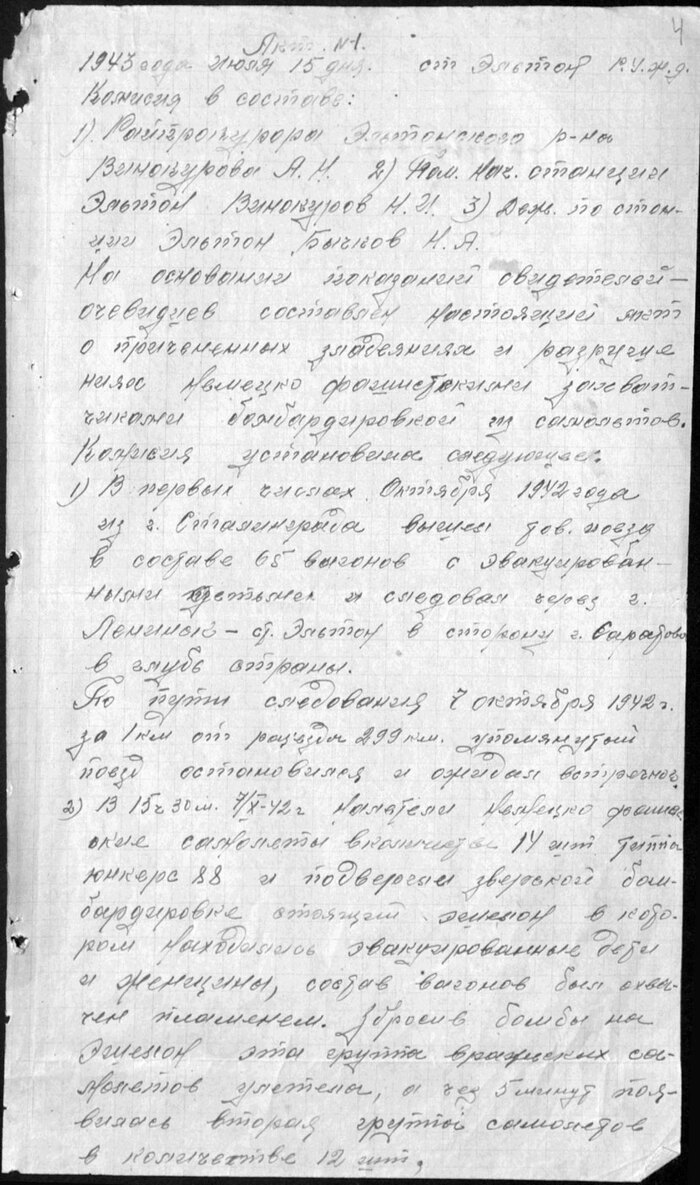 4
Акт №1.
1943 года июля 15 дня. ст Эльтон Р.У.ж.д.
Комисия в составе:
1). Райпрокурора Эльтонского р-на
Винокурова А.Н. 2) Пом. Нач. станции
Эльтон Винокуров Н.И. 3) Деж. по стан-
ции Эльтон Бычков Н.А.
На основании показаний свидетелей-
очевидцев составлен настоящий акт
о причененных злодеяниях и разруше
ниях Немецко фашистскими захват-
чиками бомбардировкой из самолетов.
Комисия установила следующее.
1) В первых числах Октября 1942 года
из г. Сталинграда вышел тов. поезд
в составе 65 вагонов с эвакуирован-
ными детьми и следовал через г.
Ленинск - ст. Эльтон в сторону г. Саратова
в глубь страны.
По пути следования 7 октября 1942 г.
за 1 км от разъезда 299 км. упомянутый
поезд остановился и ожидал встречного.
2) В 15 ч 30 м. 7/X-42 г налетели Немецко фашист
ские самолеты в количестве 14 шт типпа
юнкерс 88 и подвергли зверской бом-
бардировке стоящий эшелон в кото-
ром находились эвакуированные дети
и женщины, состав вагонов был охва-
чен пламенем. Збросив бомбы на
эшелон эта группа вражских са-
молетов улетела, а чрез 5 минут поя-
вилась вторая группа самолетов
в количестве 12 шт.